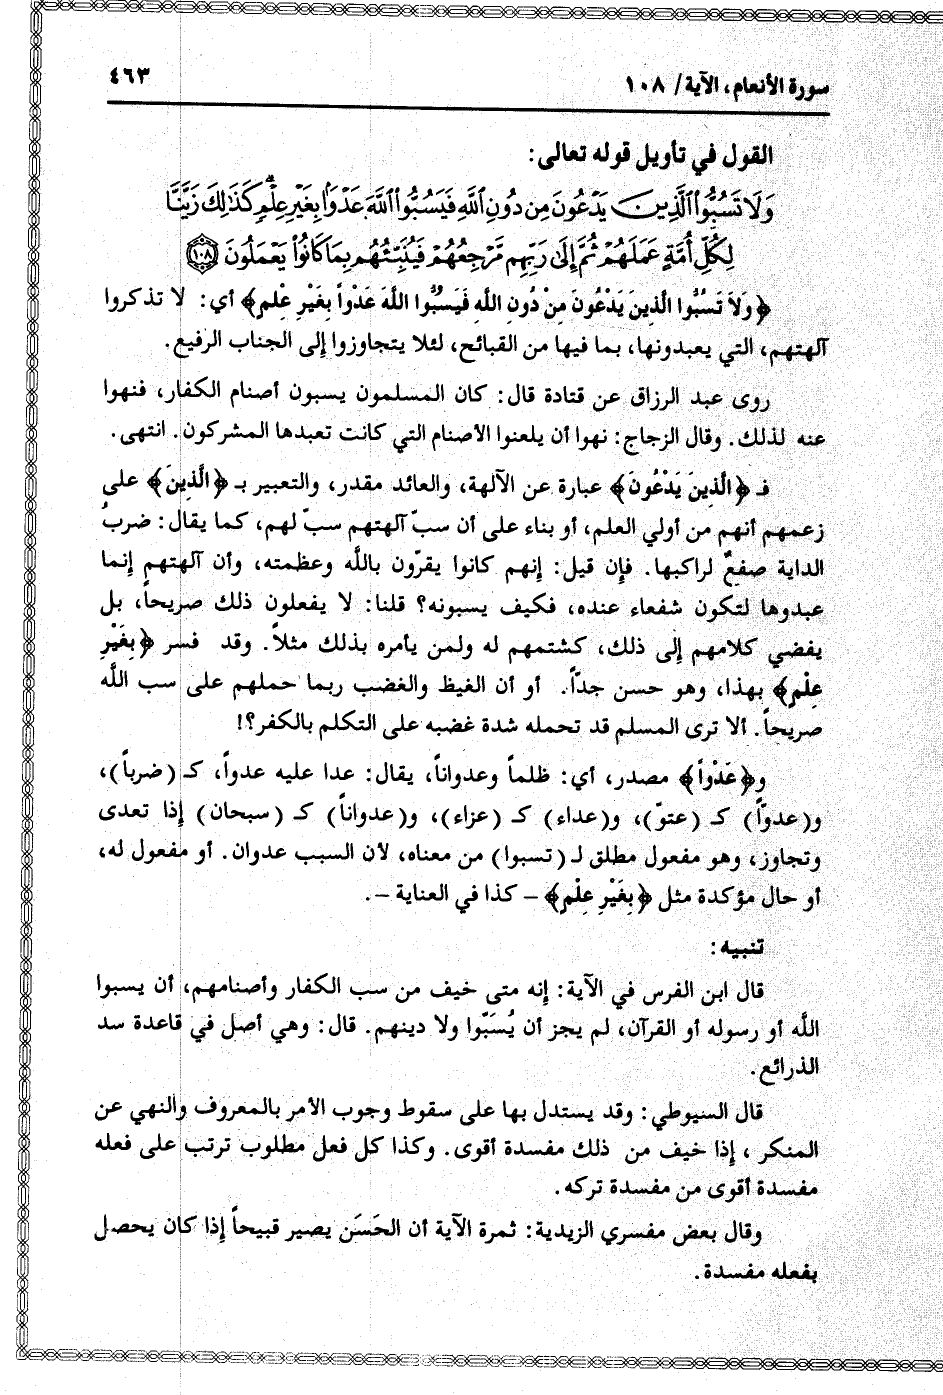 سورة الأنعام، الآية/ ١٠٨
٤٦٣
القول في تأويل قوله تعالى:
وَلَا تَسُبُّوا۟ ٱلَّذِينَ يَدْعُونَ مِن دُونِ ٱللَّهِ فَيَسُبُّوا۟ ٱللَّهَ عَدْوًۢا بِغَيْرِ عِلْمٍۗ كَذَٰلِكَ زَيَّنَّا
لِكُلِّ أُمَّةٍ عَمَلَهُمْ ثُمَّ إِلَىٰ رَبِّهِم مَّرْجِعُهُمْ فَيُنَبِّئُهُم بِمَا كَانُوا۟ يَعْمَلُونَ ١٠٨
﴿وَلاَ تَسُبُّوا الَّذِينَ يَدْعُونَ مِنْ دُونِ اللَّهِ فَيَسُبُّوا اللَّهَ عَدْواً بِغَيْرِ عِلْمٍ﴾ أي: لا تذكروا
آلهتهم، التي يعبدونها، بما فيها من القبائح، لئلا يتجاوزوا إلى الجناب الرفيع.
روى عبد الرزاق عن قتادة قال: كان المسلمون يسبون أصنام الكفار، فنهوا
عنه لذلك. وقال الزجاج: نهوا أن يلعنوا الأصنام التي كانت تعبدها المشركون. انتهى.
فـ ﴿الَّذِينَ يَدْعُونَ﴾ عبارة عن الآلهة، والعائد مقدر، والتعبير بـ ﴿الَّذِينَ﴾ على
زعمهم أنهم من أولي العلم، أو بناء على أن سبّ آلهتهم سبّ لهم، كما يقال: ضربُ
الداية صفعٌ لراكبها. فإن قيل: إنهم كانوا يقرّون باللّه وعظمته، وأن آلهتهم إنما
عبدوها لتكون شفعاء عنده، فكيف يسبونه؟ قلنا: لا يفعلون ذلك صريحاً، بل
يفضي كلامهم إلى ذلك، كشتمهم له ولمن يأمره بذلك مثلاً. وقد فسر ﴿بِغَيْرِ
عِلْمٍ﴾ بهذا، وهو حسن جدّاً. أو أن الغيظ والغضب ربما حملهم على سب اللّه
صريحاً. ألا ترى المسلم قد تحمله شدة غضبه على التكلم بالكفر؟!
و﴿عَدْواً﴾ مصدر، أي: ظلماً وعدواناً، يقال: عدا عليه عدواً، كـ (ضرباً)،
و(عدوّاً) كـ (عتوّ)، و(عداء) كـ (عزاء)، و(عدواناً) كـ (سبحان) إذا تعدى
وتجاوز، وهو مفعول مطلق لـ (تسبوا) من معناه، لأن السبب عدوان. أو مفعول له،
أو حال مؤكدة مثل ﴿بِغَيْرِ عِلْمٍ﴾ – كذا في العناية –.
تنبيه:
قال ابن الفرس في الآية: إنه متى خيف من سب الكفار وأصنامهم، أن يسبوا
اللّه أو رسوله أو القرآن، لم يجز أن يُسَبّوا ولا دينهم. قال: وهي أصل في قاعدة سد
الذرائع.
قال السيوطي: وقد يستدل بها على سقوط وجوب الأمر بالمعروف والنهي عن
المنكر ، إذا خيف من ذلك مفسدة أقوى. وكذا كل فعل مطلوب ترتب على فعله
مفسدة أقوى من مفسدة تركه.
وقال بعض مفسري الزيدية: ثمرة الآية أن الحَسَن يصير قبيحاً إذا كان يحصل
بفعله مفسدة.